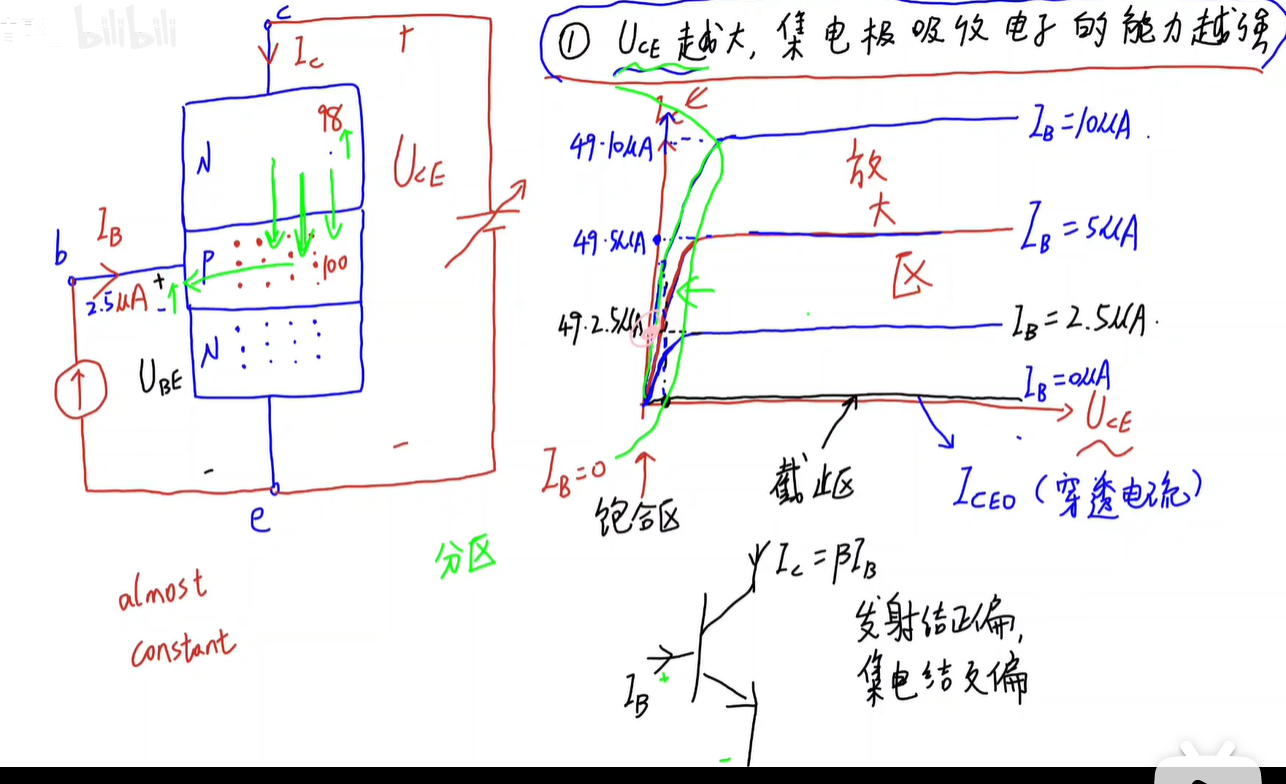 bilibili
c
I_C
+
98
N
U_CE
I_B
b
P
100
+
2.5μA
-
N
U_BE
-
-
e
almost
constant
分区
① U_CE 越大, 集电极吸收电子的能力越强
I_C
49·10μA
I_B=10μA.
放
大
区
49·5μA
I_B=5μA
49·2.5μA
I_B=2.5μA.
I_B=0μA
U_CE
I_B=0
饱合区
截止区
I_CEO (穿透电流)
I_C=βI_B
发射结正偏,
集电结反偏
I_B
+
-